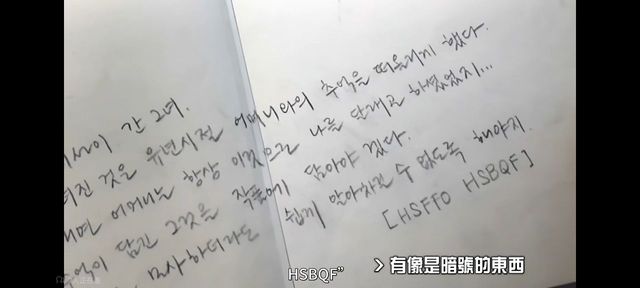 간 그녀.
것은 유년시절 어머니와의 추억을 떠올리게 했다.
어머니는 항상 이것으로 나를 달래고 하셨었지...
담긴 그것을 작품에 담아야 겠다.
묘사하더라도 쉽게 알아차릴 수 없도록 해야지.
[HSFFO HSBQF]
HSBQF”
> 有像是暗號的東西